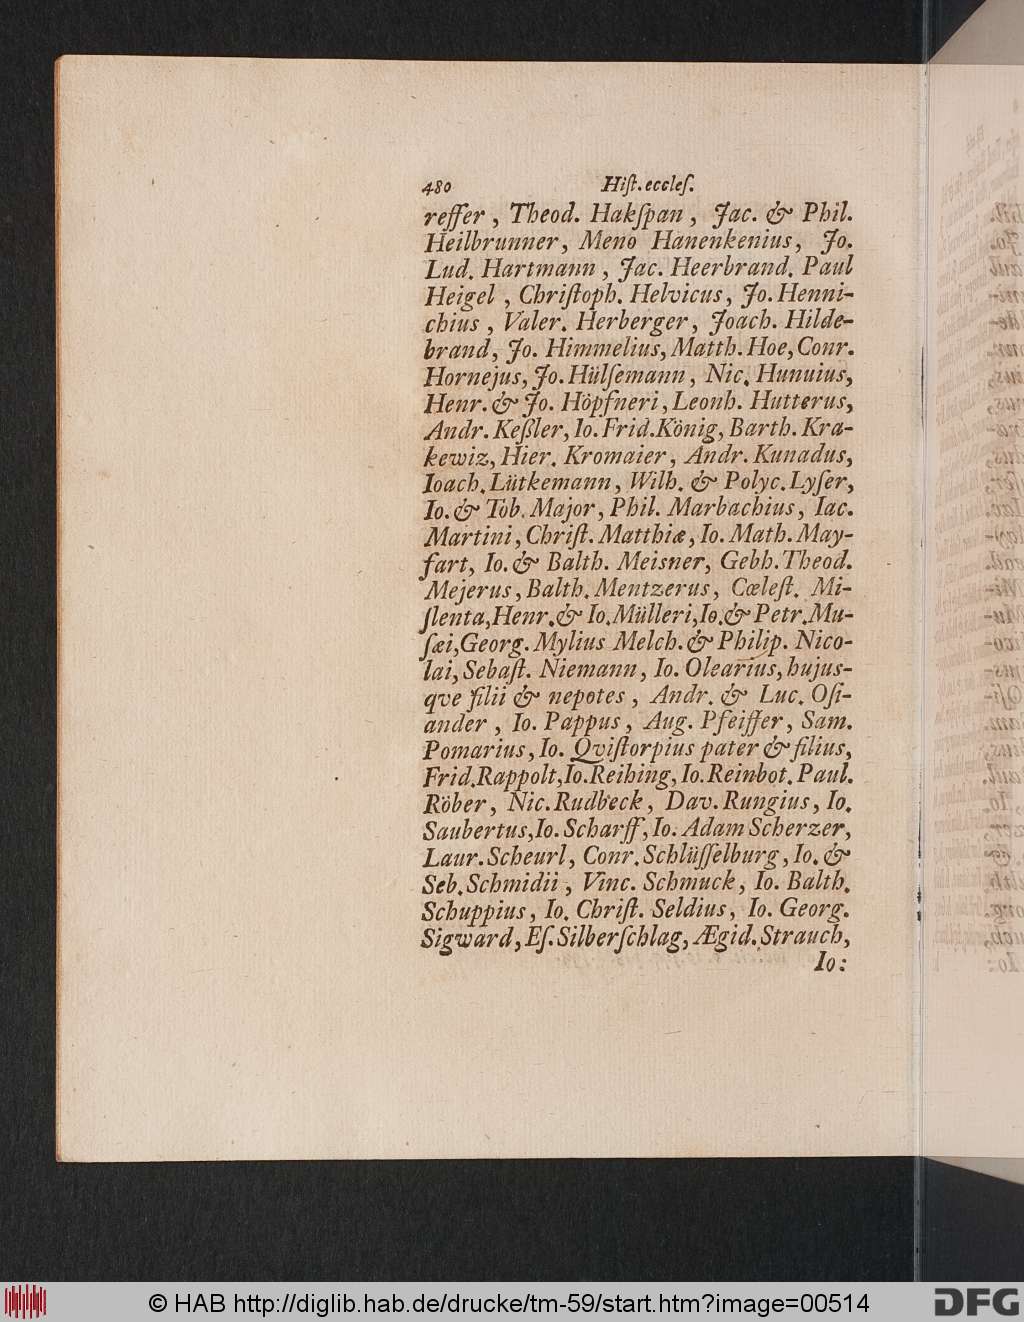 480 Hiſt. eccleſ.
reffer , Theod. Hakſpan , Jac. & Phil.
Heilbrunner, Meno Hanenkenius, Jo.
Lud. Hartmann , Jac. Heerbrand. Paul
Heigel , Chriſtoph. Helvicus, Jo. Henni-
chius , Valer. Herberger, Joach. Hilde-
brand, Jo. Himmelius, Matth. Hoe, Conr.
Hornejus, Jo. Hülſemann , Nic. Hunuius,
Henr. & Jo. Höpfneri, Leonh. Hutterus,
Andr. Keßler, Io. Frid. König, Barth. Kra-
kewiz, Hier. Kromaier, Andr. Kunadus,
Ioach. Lütkemann, Wilh. & Polyc. Lyſer,
Io. & Tob. Major, Phil. Marbachius, Iac.
Martini, Chriſt. Matthiæ, Io. Math. May-
fart, Io. & Balth. Meisner, Gebh. Theod.
Mejerus, Balth. Mentzerus, Cœleſt. Mi-
ſlenta, Henr. & Io. Mülleri, Io. & Petr. Mu-
ſæi, Georg. Mylius Melch. & Philip. Nico-
lai, Sebaſt. Niemann, Io. Olearius, hujus-
qve filii & nepotes , Andr. & Luc. Oſi-
ander , Io. Pappus, Aug. Pfeiffer, Sam.
Pomarius, Io. Qviſtorpius pater & filius,
Frid. Rappolt, Io. Reihing, Io. Reinbot. Paul.
Röber, Nic. Rudbeck, Dav. Rungius, Io.
Saubertus, Io. Scharff, Io. Adam Scherzer,
Laur. Scheurl, Conr. Schlüſſelburg, Io. &
Seb. Schmidii , Vinc. Schmuck, Io. Balth.
Schuppius, Io. Chriſt. Seldius, Io. Georg.
Sigward, Eſ. Silberſchlag, Ægid. Strauch,
Io:
© HAB http://diglib.hab.de/drucke/tm-59/start.htm?image=00514
DFG